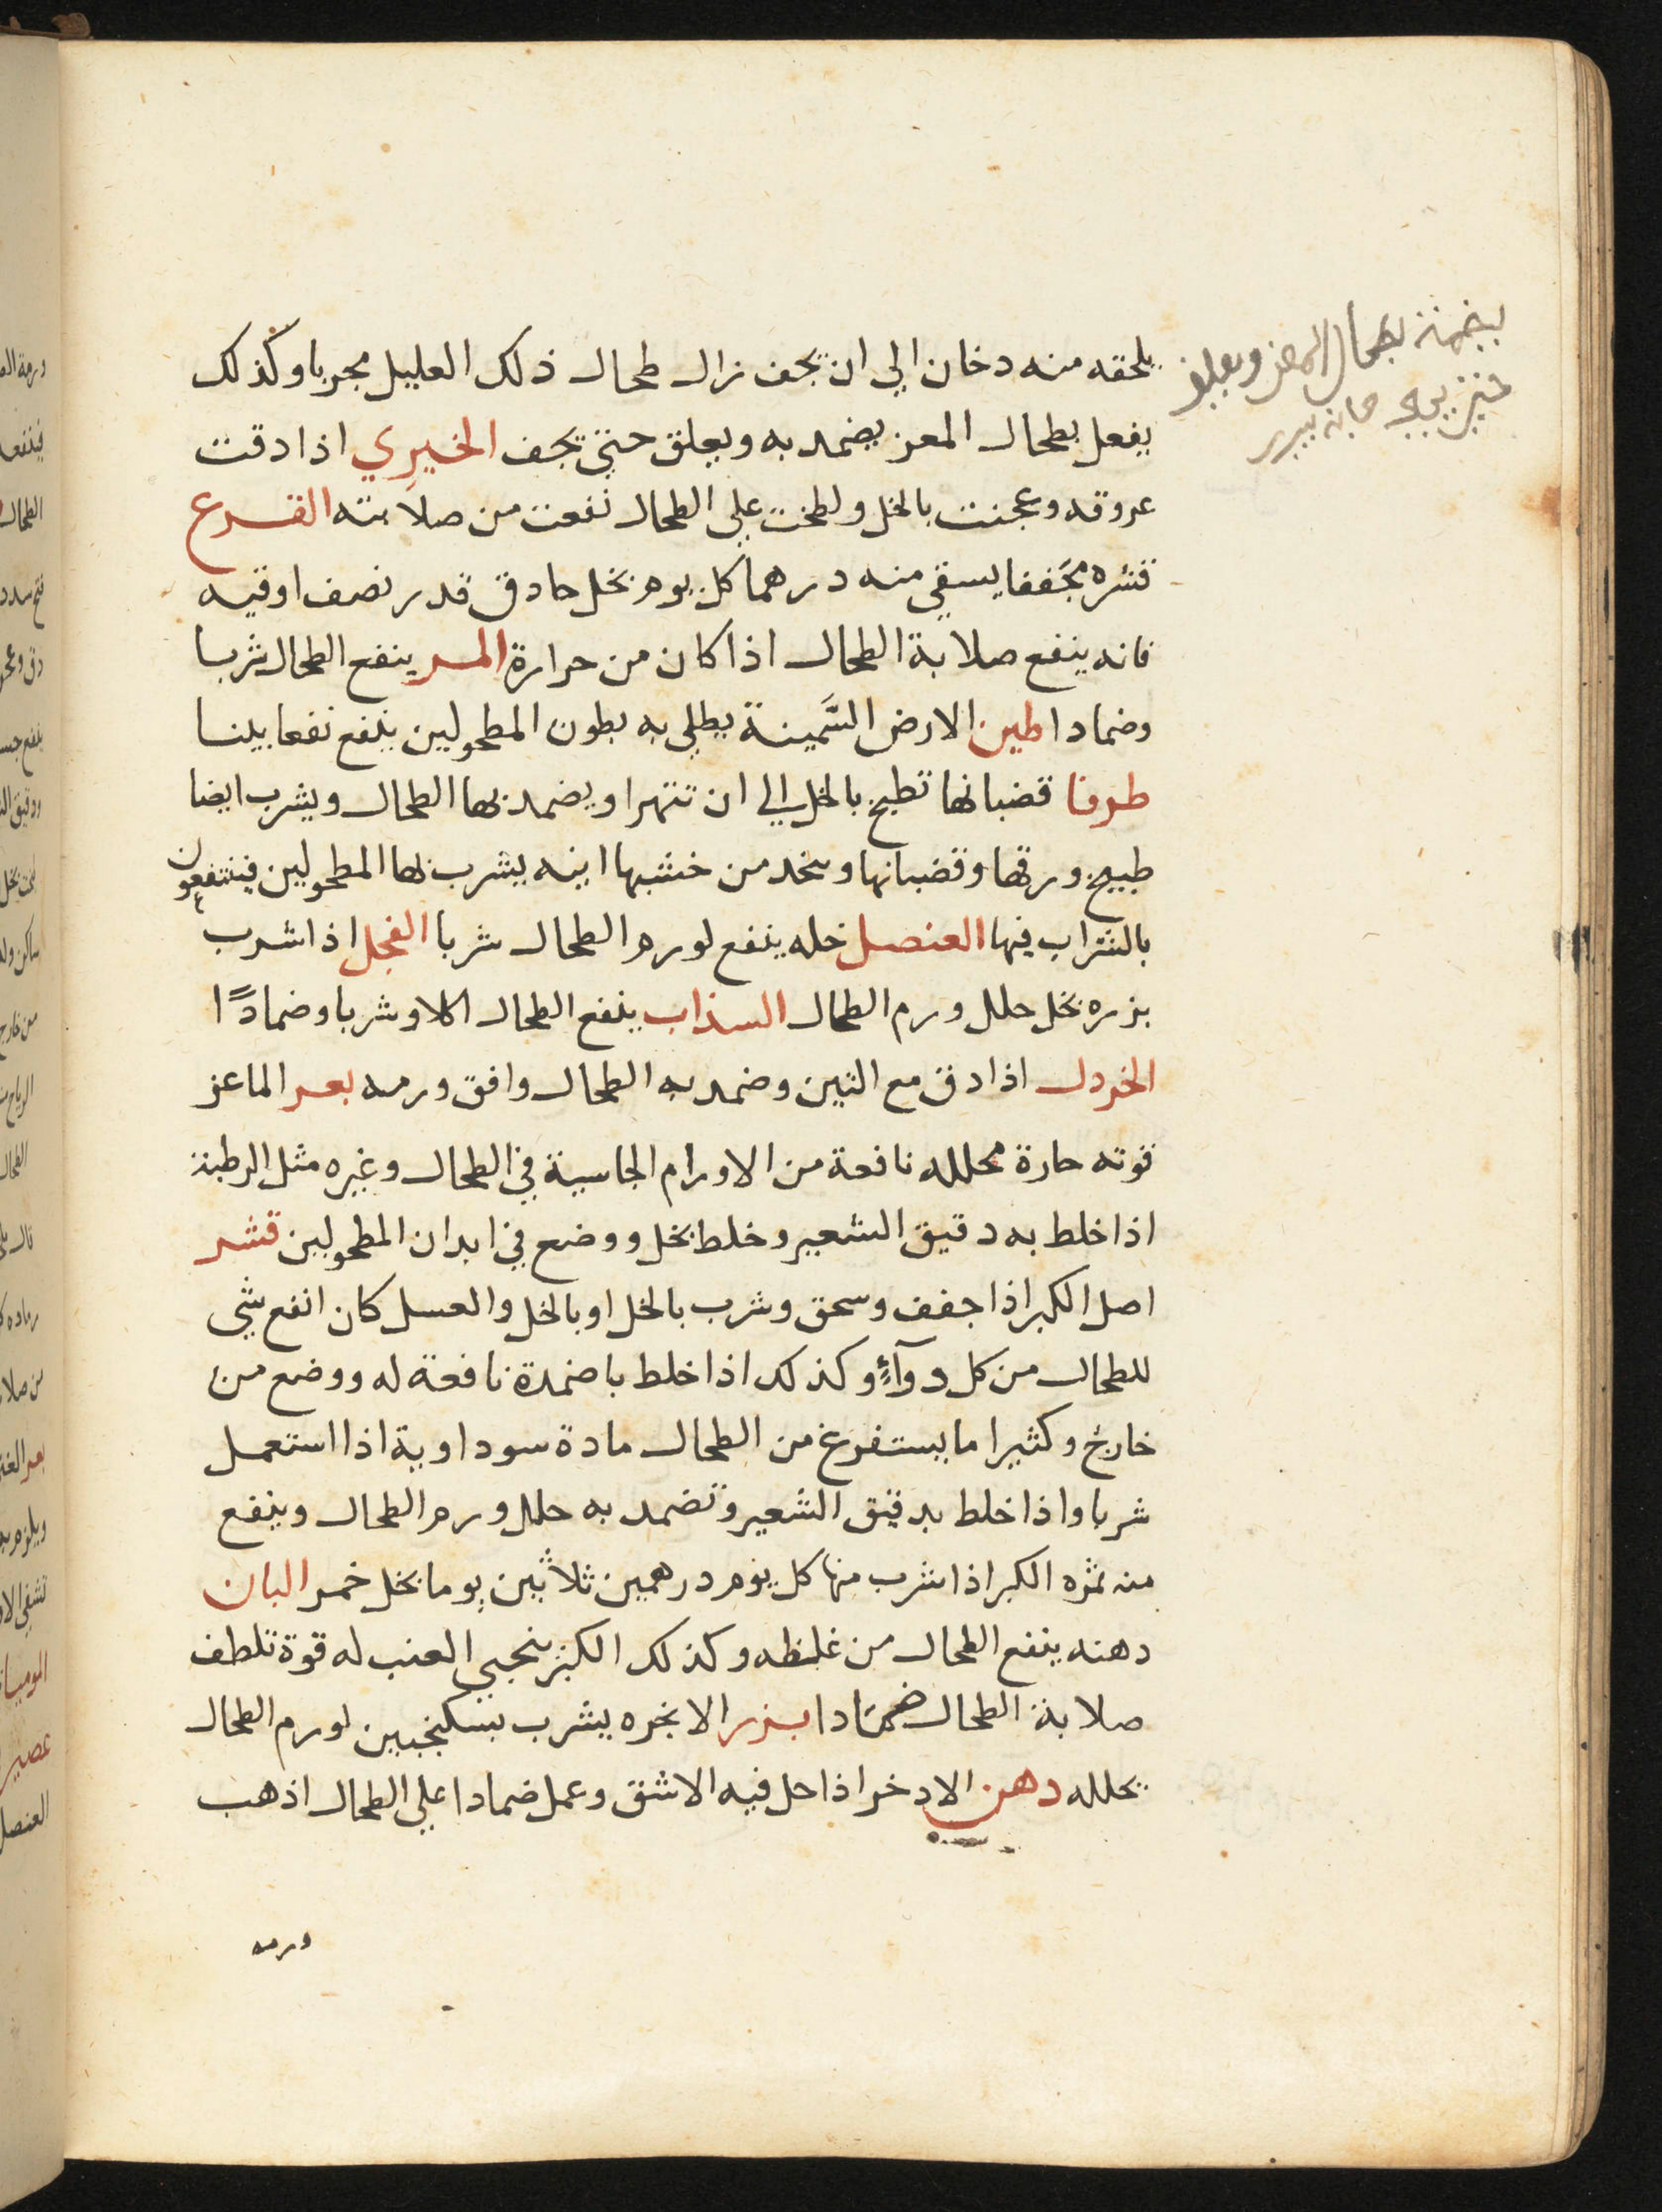 يلحقه منه دخان الي ان يجف زال طحال ذلك العليل مجربا وكذلك
يفعل بطحال المعز يضمد به ويعلق حتي يجف الخيري اذا دقت
عروقه وعجنت بالخل ولطخت علي الطحال نفعت من صلابته القرع
قشره مجففا يسقي منه درهما كل يوم بخل حادق قدر نصف اوقيه
فانه ينفع صلابة الطحال اذا كان من حرارة المر ينفع الطحال شربا
وضمادا طين الارض السَّمينة يطلي به بطون المطحولين ينفع نفعا بينا
طرفا قضبانها تطبخ بالخل الي ان تتهرا ويضمد بها الطحال ويشرب ايضا
طبيخ ورقها وقضبانها ويتخد من خشبها انيه يشرب بها المطحولين فينتفعون
بالشراب فيها العنصل خله ينفع لورم الطحال شربا الفجل اذا شرب
بزره بخل حلل ورم الطحال السذاب ينفع الطحال اكلا وشربا وضمادًا
الخردل اذا دق مع التين وضمد به الطحال وافق ورمه بعر الماعز
قوته حارة محلله نافعة من الاورام الجاسية في الطحال وغيره مثل الرطبة
اذا خلط به دقيق الشعير وخلط بخل ووضع في ابدان المطحولين قشر
اصل الكبر اذا جفف وسحق وشرب بالخل او بالخل والعسل كان انفع شي
للطحال من كل دوآءٍ وكذلك اذا خلط باضمدة نافعة له ووضع من
خارج وكثيرا ما يستفرغ من الطحال مادة سوداوية اذا استعمل
شربا واذا خلط بدقيق الشعير وتضمد به حلل ورم الطحال وينفع
منه ثمره الكبر اذا شرب منها كل يوم درهمين ثلاثين يوما بخل خمر البان
دهنه ينفع الطحال من غلظه وكذلك الكبر بنجير العنب له قوة تلطف
صلابة الطحال ضمادا بزر الانجره يشرب بسكنجبين لورم الطحال
يحلله دهن الادخر اذا حل فيه الاشق وعمل ضمادا علي الطحال اذهب
ورمه